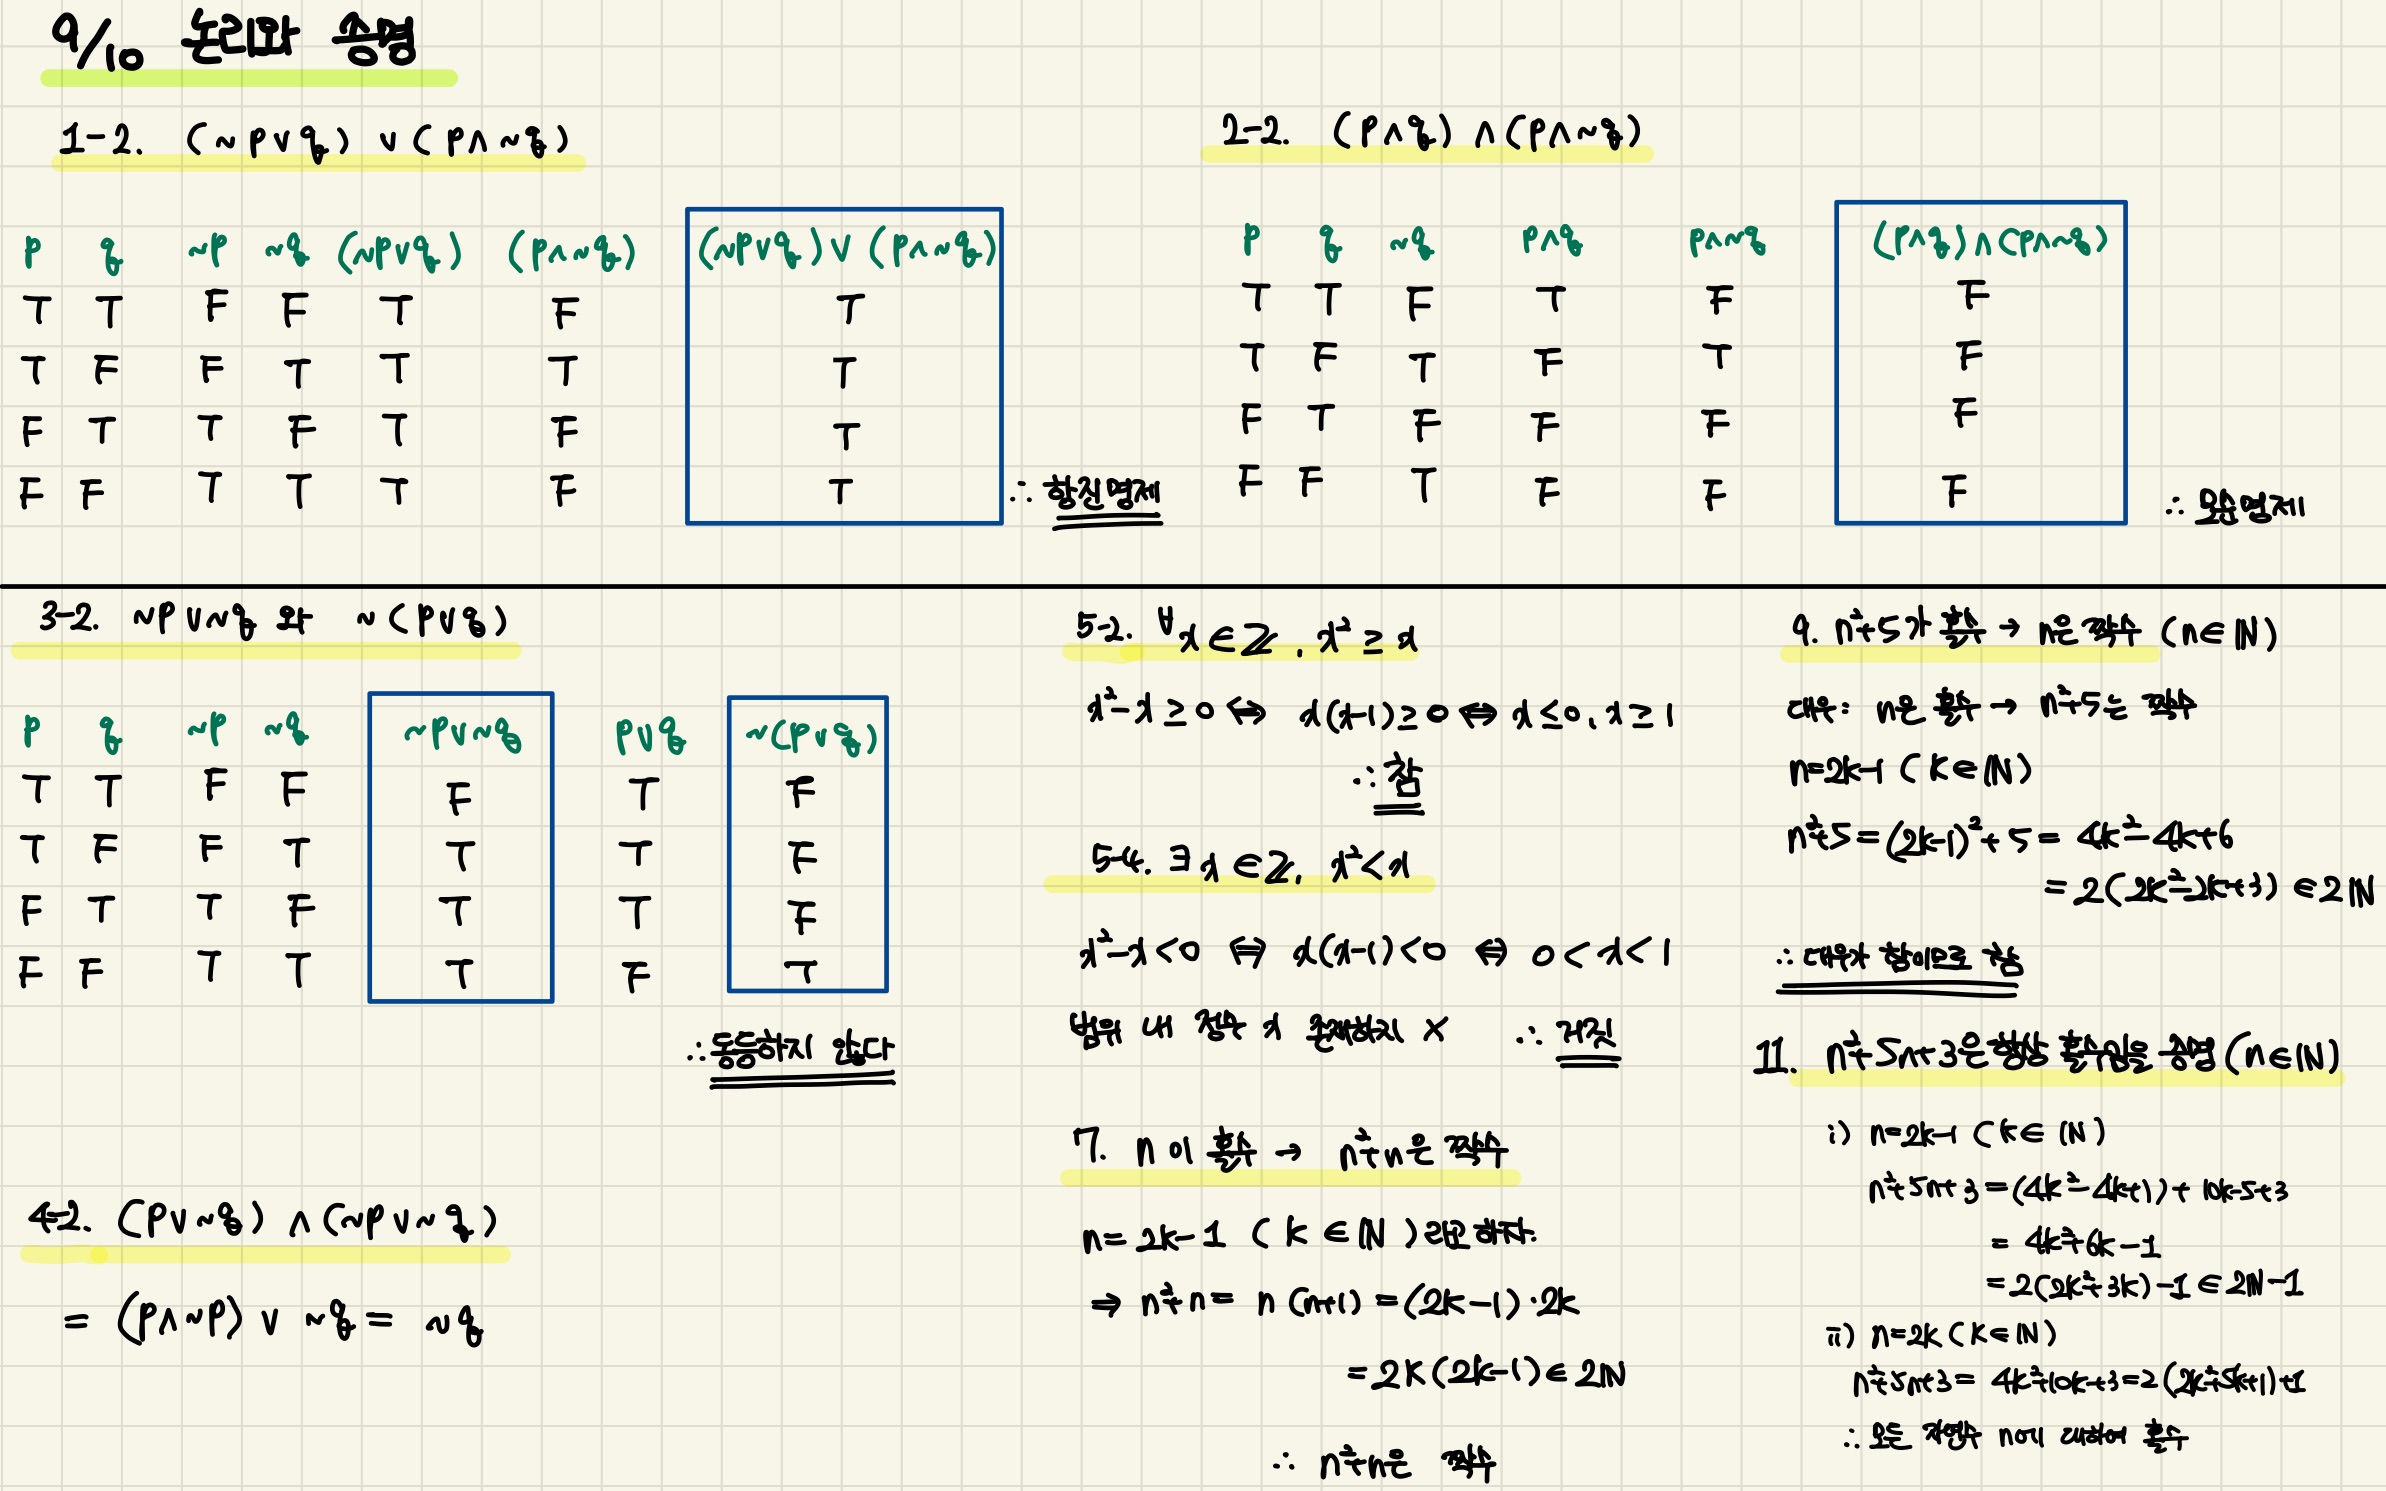 9/10 논리와 증명
1-2. (~p∨q) ∨ (p∧~q)
p q ~p ~q (~p∨q) (p∧~q) (~p∨q)∨(p∧~q)
T T F F T F T
T F F T T T T
F T T F T F T
F F T T T F T
∴ 항진명제
2-2. (p∧q) ∧ (p∧~q)
p q ~q p∧q p∧~q (p∧q)∧(p∧~q)
T T F T F F
T F T F T F
F T F F F F
F F T F F F
∴ 모순명제
3-2. ~p∨~q 와 ~(p∨q)
p q ~p ~q ~p∨~q p∨q ~(p∨q)
T T F F F T F
T F F T T T F
F T T F T T F
F F T T T F T
∴ 동등하지 않다
4-2. (p∨~q) ∧ (~p∨~q)
= (p∧~p) ∨ ~q = ~q
5-2. ∀x∈ℤ, x²≥x
x²-x≥0 ⇔ x(x-1)≥0 ⇔ x≤0, x≥1
∴ 참
5-4. ∃x∈ℤ, x²<x
x²-x<0 ⇔ x(x-1)<0 ⇔ 0<x<1
범위 내 정수 x 존재하지 X ∴ 거짓
7. n이 홀수 → n²+n은 짝수
n=2k-1 (k∈ℕ)라고 하자.
⇒ n²+n = n(n+1) = (2k-1)·2k
= 2k(2k-1)∈2ℕ
∴ n²+n은 짝수
9. n²+5가 홀수 → n은 짝수 (n∈ℕ)
대우: n은 홀수 → n²+5는 짝수
n=2k-1 (k∈ℕ)
n²+5=(2k-1)²+5 = 4k²-4k+6
= 2(2k²-2k+3) ∈2ℕ
∴ 대우가 참이므로 참
11. n²+5n+3은 항상 홀수임을 증명 (n∈ℕ)
i) n=2k-1 (k∈ℕ)
n²+5n+3 = (4k²-4k+1)+10k-5+3
= 4k²+6k-1
= 2(2k²+3k)-1∈2ℕ-1
ii) n=2k (k∈ℕ)
n²+5n+3 = 4k²+10k+3 = 2(2k²+5k+1)+1
∴ 모든 자연수 n에 대하여 홀수